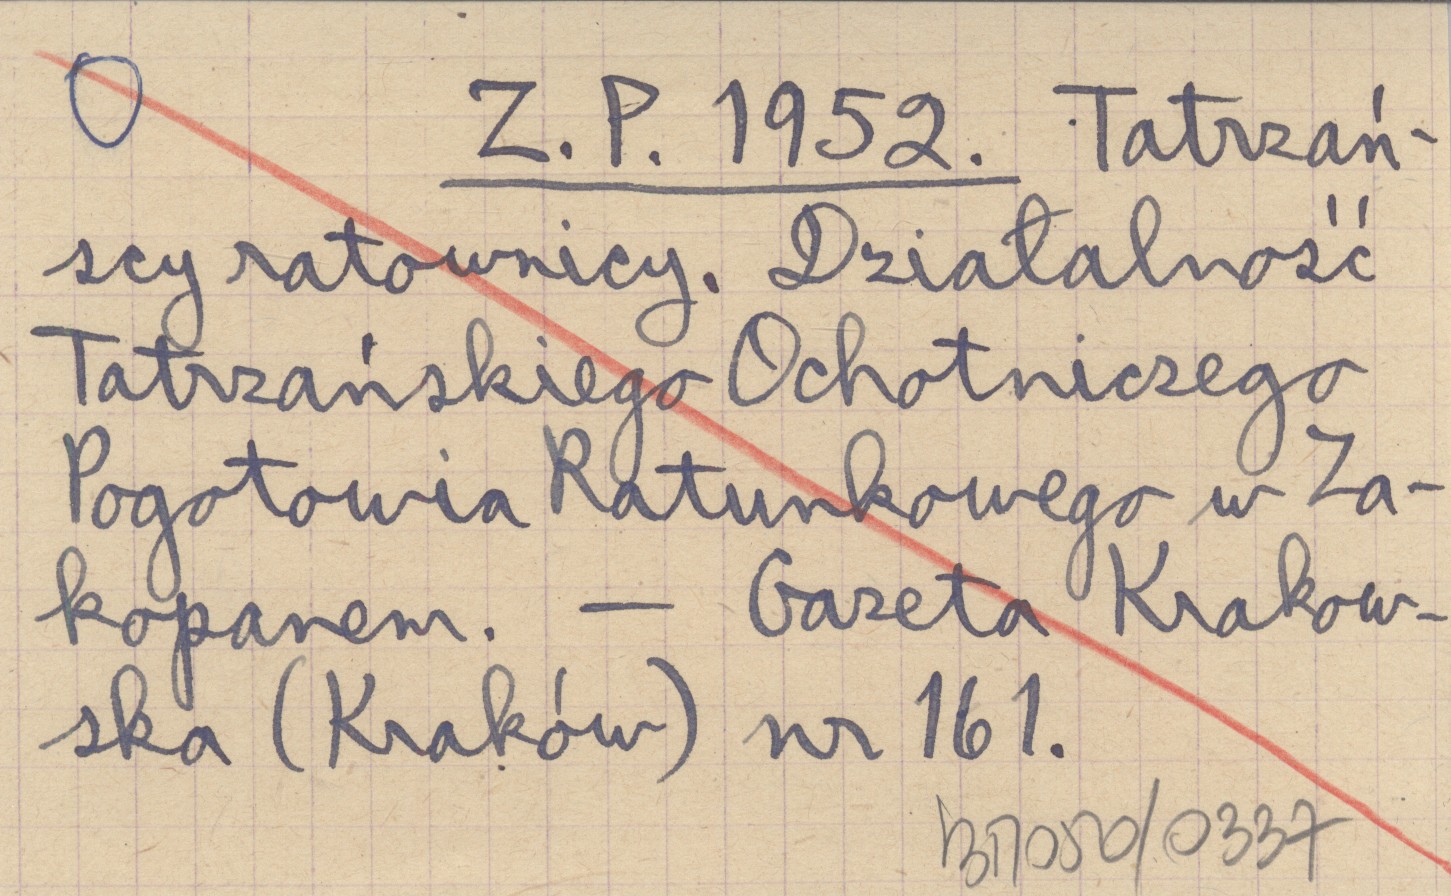 Z.P. 1952. Tatrzań-
scy ratownicy. Działalność
Tatrzańskiego Ochotniczego
Pogotowia Ratunkowego w Za-
kopanem. — Gazeta Krakow-
ska (Kraków) nr 161.
/0337